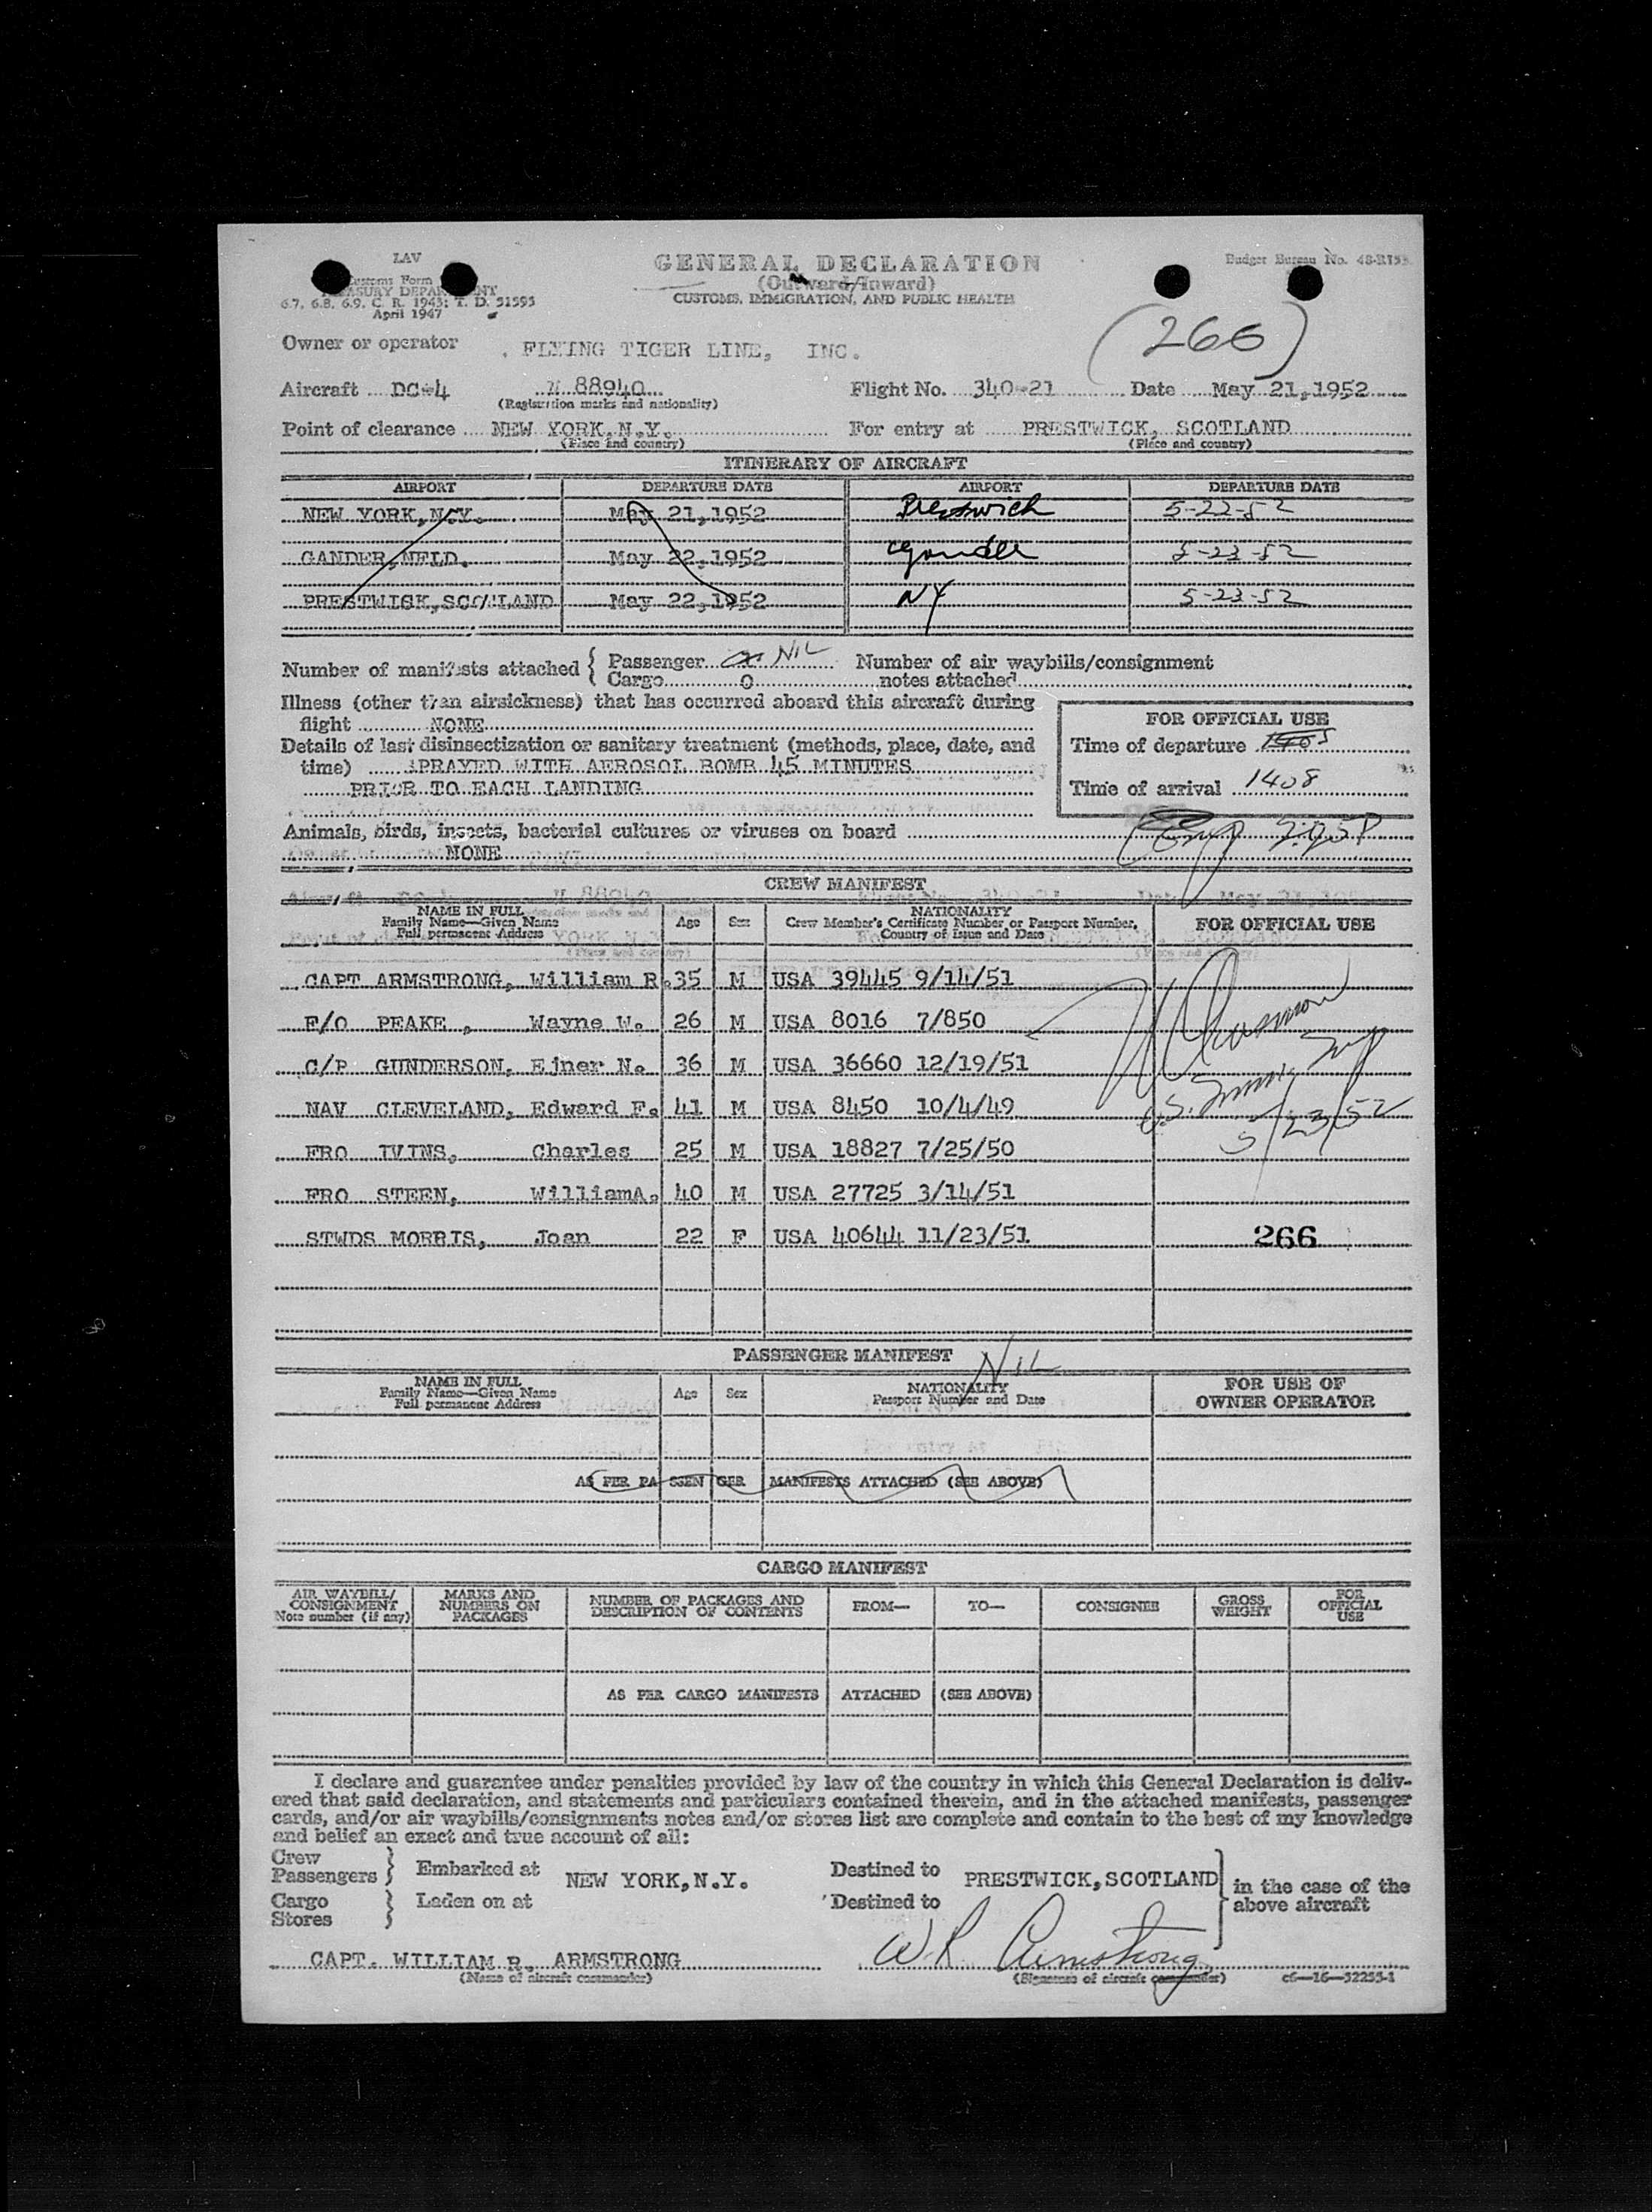 LAV
Customs Form
TREASURY DEPARTMENT
6.7, 6.8, 6.9, C. R. 1943; T. D. 51595
April 1947
GENERAL DECLARATION
(Outward/Inward)
CUSTOMS, IMMIGRATION, AND PUBLIC HEALTH
Budget Bureau No.
(266)
Owner or operator FLYING TIGER LINE, INC.
Aircraft DC-4 N 88940 Flight No. 340-21 Date May 21, 1952
(Registration marks and nationality)
Point of clearance NEW YORK, N.Y. For entry at PRESTWICK, SCOTLAND
(Place and country) (Place and country)
ITINERARY OF AIRCRAFT
AIRPORT DEPARTURE DATE AIRPORT DEPARTURE DATE
NEW YORK, N.Y. May 21, 1952 Prestwich 5-22-52
GANDER, NFLD. May 22, 1952 Gander 5-23-52
PRESTWICK, SCOTLAND May 22, 1952 NY 5-23-52
Number of manifests attached { Passenger NIL Number of air waybills/consignment
Cargo 0 notes attached
Illness (other than airsickness) that has occurred aboard this aircraft during
flight NONE
FOR OFFICIAL USE
Details of last disinsectization or sanitary treatment (methods, place, date, and
time) SPRAYED WITH AEROSOL BOMB 45 MINUTES
PRIOR TO EACH LANDING
Time of departure
Time of arrival 1408
Animals, birds, insects, bacterial cultures or viruses on board
NONE
CREW MANIFEST
NAME IN FULL
Family Name—Given Name
Full permanent Address
Age Sex
NATIONALITY
Crew Member's Certificate Number or Passport Number,
Country of Issue and Date
FOR OFFICIAL USE
CAPT ARMSTRONG, William R. 35 M USA 39445 9/14/51
F/O PEAKE , Wayne W. 26 M USA 8016 7/850
C/P GUNDERSON, Ejner N. 36 M USA 36660 12/19/51
NAV CLEVELAND, Edward F. 41 M USA 8450 10/4/49
FRO IVINS, Charles 25 M USA 18827 7/25/50
FRO STEEN, WilliamA. 40 M USA 27725 3/14/51
STWDS MORRIS, Joan 22 F USA 40644 11/23/51 266
U.S. Imm. Insp
5/23/52
PASSENGER MANIFEST NIL
NAME IN FULL
Family Name—Given Name
Full permanent Address
Age Sex
NATIONALITY
Passport Number and Date
FOR USE OF
OWNER OPERATOR
AS PER PASSENGER MANIFESTS ATTACHED (SEE ABOVE)
CARGO MANIFEST
AIR WAYBILL/
CONSIGNMENT
Note number (if any)
MARKS AND
NUMBERS ON
PACKAGES
NUMBER OF PACKAGES AND
DESCRIPTION OF CONTENTS
FROM— TO— CONSIGNEE
GROSS
WEIGHT
FOR
OFFICIAL
USE
AS PER CARGO MANIFESTS ATTACHED (SEE ABOVE)
I declare and guarantee under penalties provided by law of the country in which this General Declaration is deliv-
ered that said declaration, and statements and particulars contained therein, and in the attached manifests, passenger
cards, and/or air waybills/consignments notes and/or stores list are complete and contain to the best of my knowledge
and belief an exact and true account of all:
Crew
Passengers } Embarked at NEW YORK, N.Y. Destined to PRESTWICK, SCOTLAND in the case of the
Cargo
Stores } Laden on at Destined to above aircraft
CAPT. WILLIAM R. ARMSTRONG W R Armstrong
(Name of aircraft commander) (Signature of aircraft commander) c6—16—52253-1